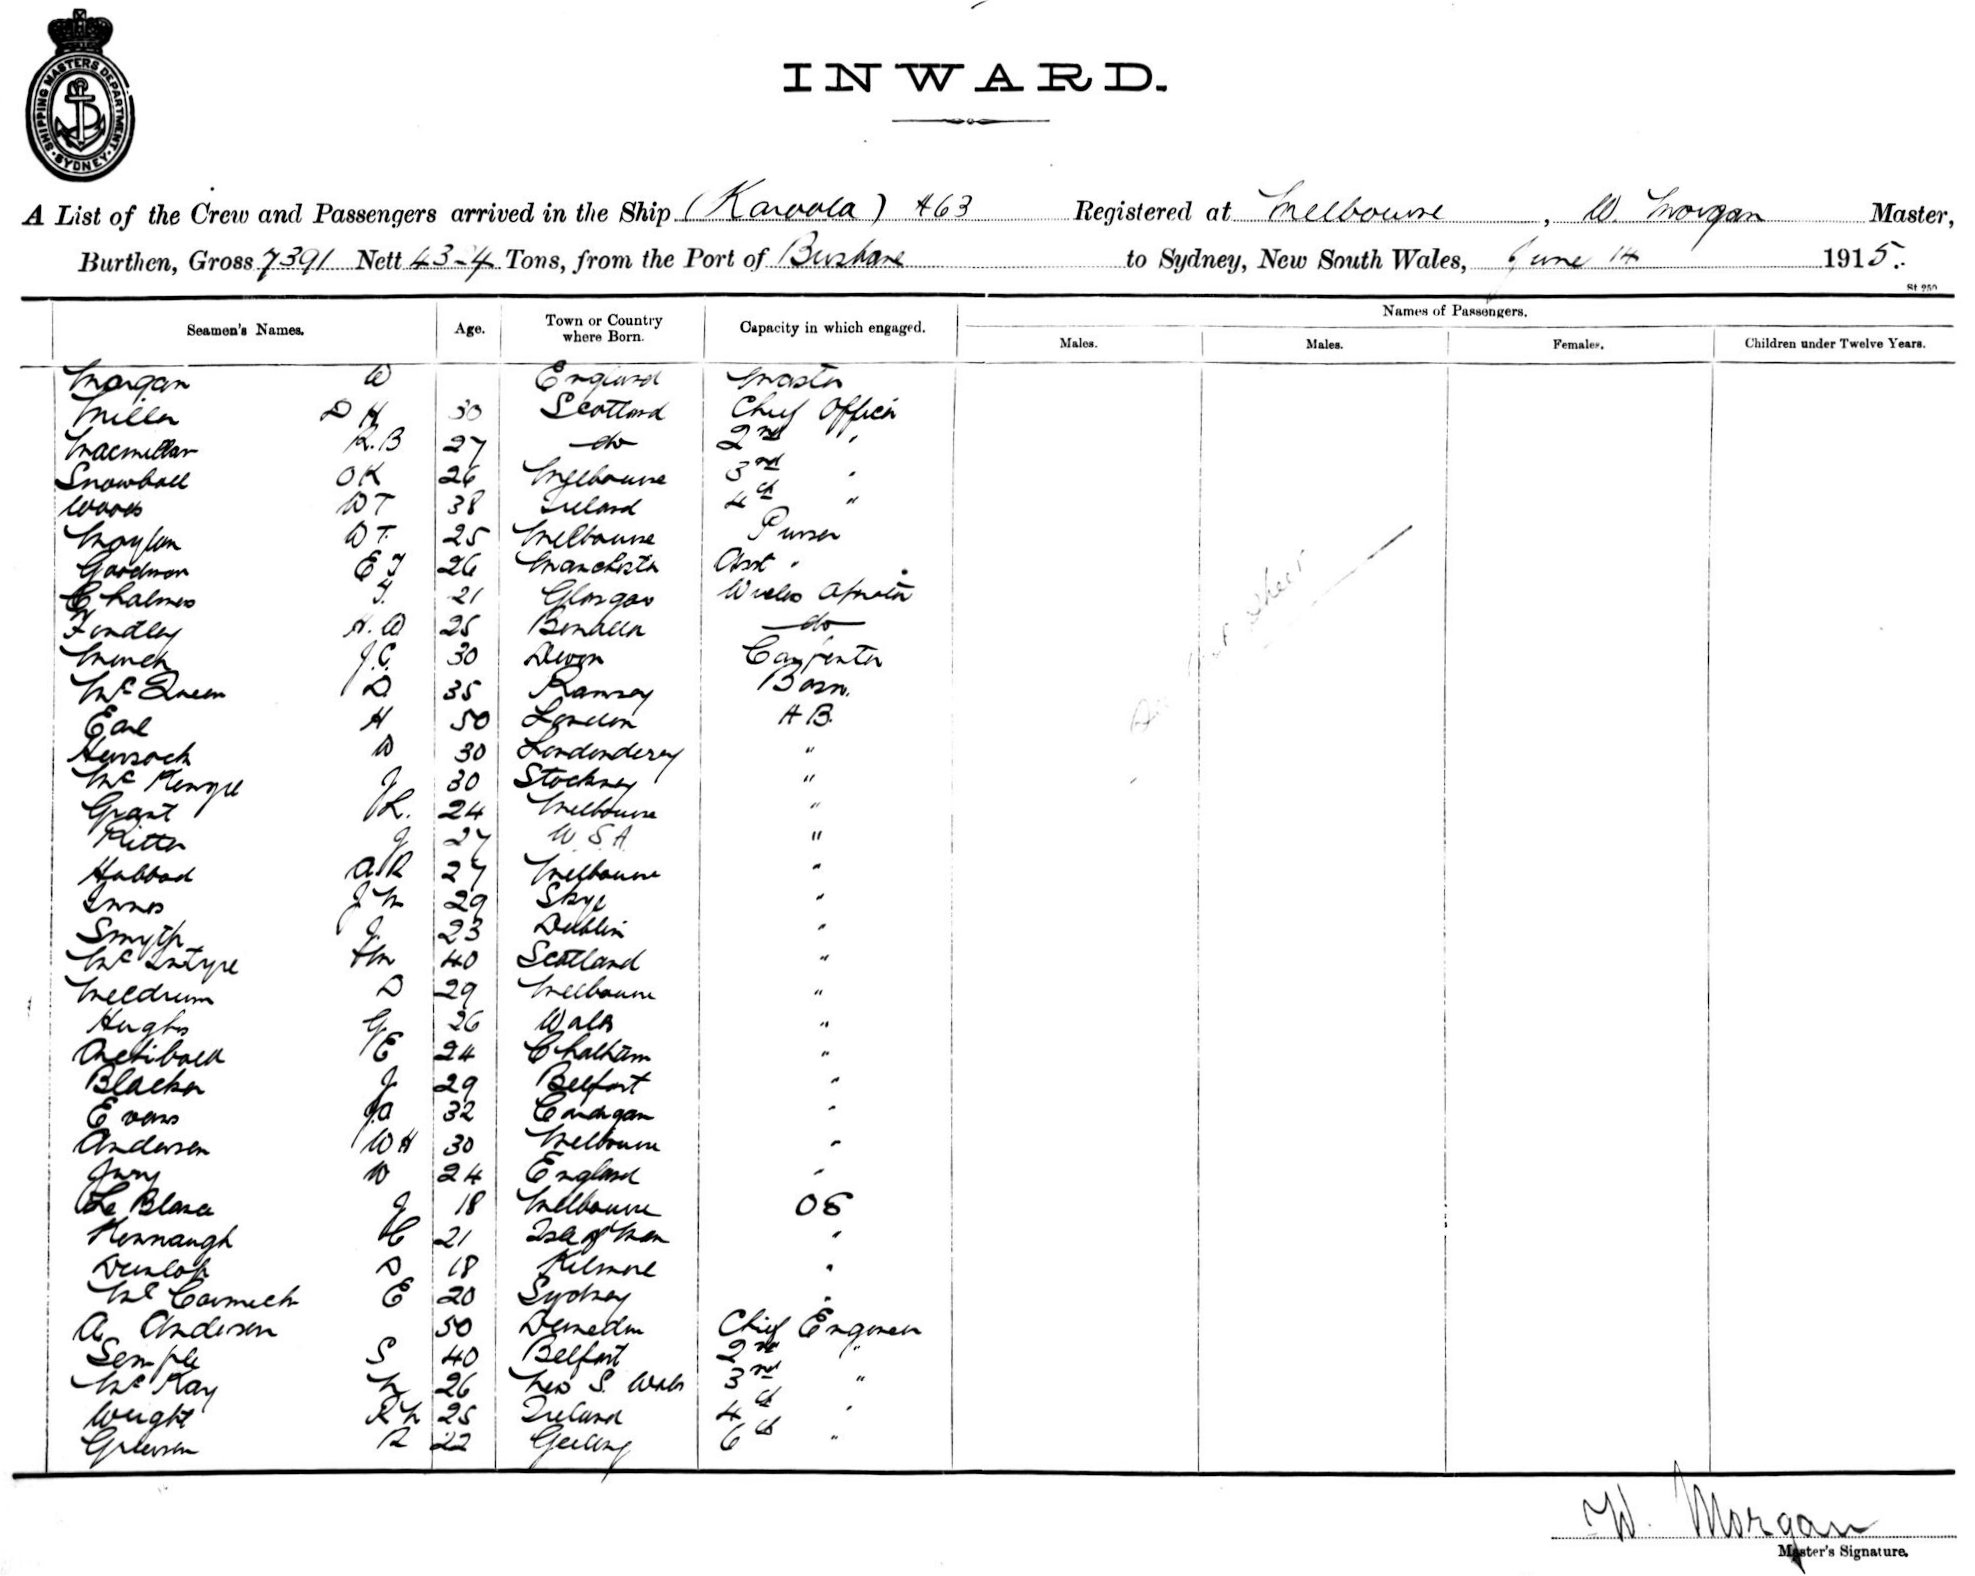 SHIPPING MASTERS DEPARTMENT. SYDNEY.
INWARD.
A List of the Crew and Passengers arrived in the Ship (Karoola) A63 Registered at Melbourne, W. Morgan Master,
Burthen, Gross 7391 Nett Tons, from the Port of Brisbane to Sydney, New South Wales, June 14 1915.
St 250
Seamen's Names. Age. Town or Country where Born. Capacity in which engaged. Names of Passengers.
Males. Males. Females. Children under Twelve Years.
Morgan W England Master
Miller D H 30 Scotland Chief Officer
Macmillan R.B 27 do 2nd "
Snowball O K 26 Melbourne 3rd "
Woods W T 38 Ireland 4th "
Moylan W T. 25 Melbourne Purser
Goodman E J 26 Manchester Asst "
Chalmers J. 21 Glasgow Wireless Operator
Findley H. W 25 Benalla do
J.C. 30 Devon Carpenter
McQueen D 35 Ramsey Bosn.
Earl H 50 London A B.
W 30 Londonderry "
McKenzie J 30 "
Grant J L. 24 Melbourne "
Ritter J 27 U.S.A "
Hubbard A R 27 Melbourne "
Innes J M 29 Skye "
Smyth J. 23 Dublin "
McIntyre 40 Scotland "
Meldrum D 29 Melbourne "
Hughes G 26 Wales "
Archibald E 24 Chatham "
Blacker J 29 Belfast "
Evans J A 32 Cardigan "
Andersen W H 30 Melbourne "
W 24 England "
Le Blanc J 18 Melbourne O S
Kennaugh C 21 Isle of Man "
Dunlop D 18 Kilmore "
McCormick E 20 Sydney "
A Anderson 50 Dunedin Chief Engineer
Semple S 40 Belfast 2nd "
McKay N 26 New S. Wales 3rd "
Wright R N 25 Ireland 4th "
Grierson R 22 Geelong 6th "
W. Morgan
Master's Signature.